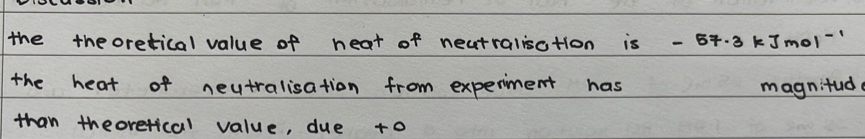 Discussion
the theoretical value of heat of neutralisation is - 57.3 kJmol⁻¹
the heat of neutralisation from experiment has magnitude
than theoretical value, due to